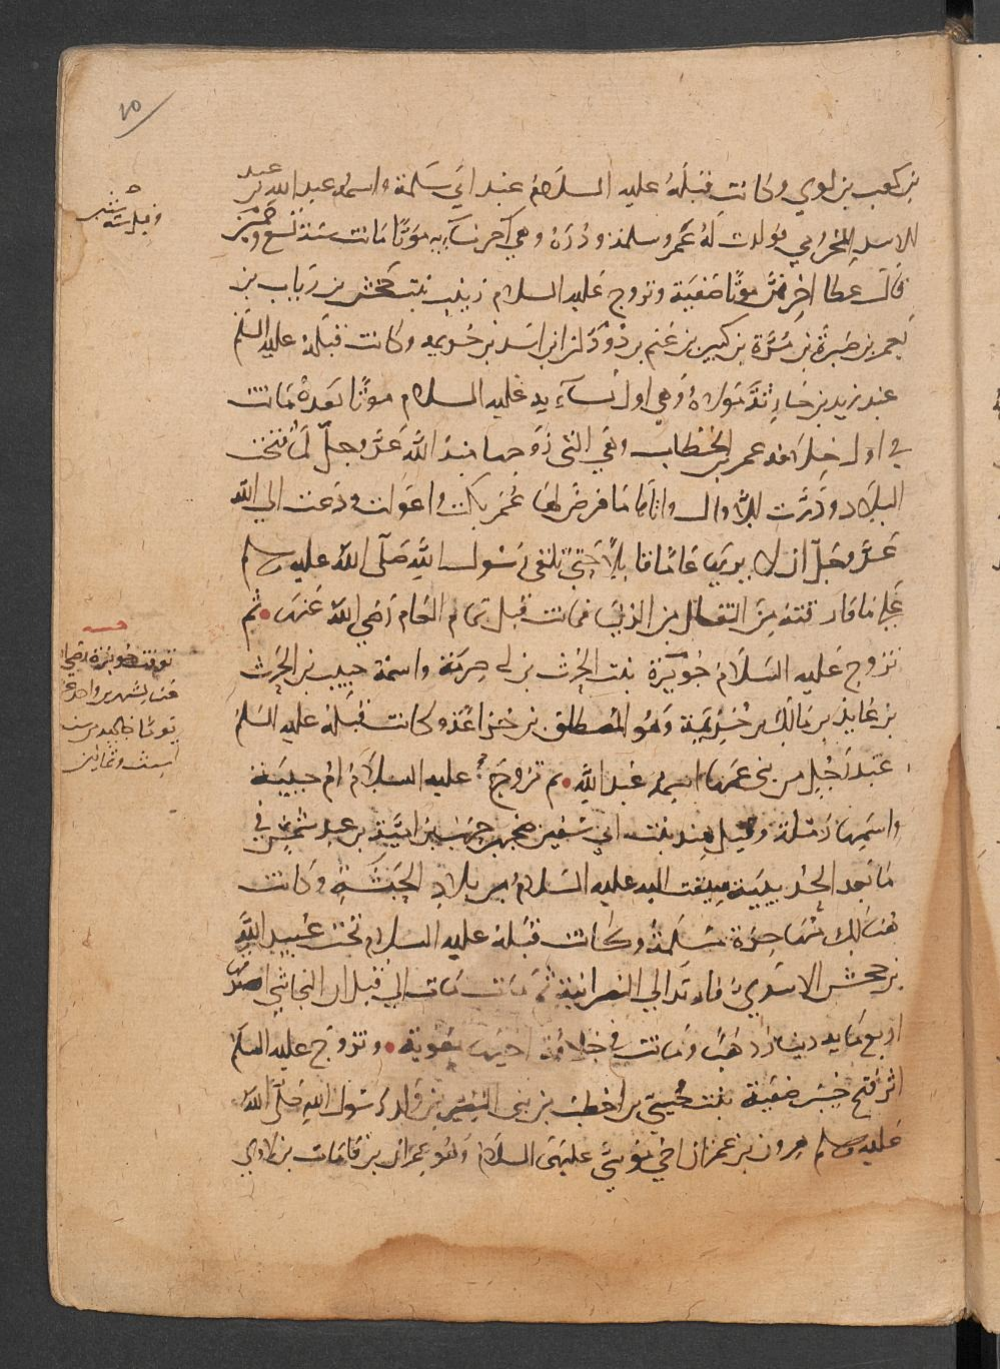 بن كعب بن لوي وكانت قبله عليه السلام عند ابي سلمة واسمه عبد الله بن عبد
الاسد المخزومي فولدت له عمر وسلمة ودرة وهي آخر نسآيه موتا ماتت سنة تسع وخمسين
قال عطا اخرهن موتا صفية وتزوج عليه السلام زينب بنت جحش بن رياب بن
يعمر بن صبرة بن مرة بن كبير بن غنم بن دودان بن اسد بن خزيمة وكانت قبله عليه السلم
عند زيد بن حارثة مولاه وهي اول نسآيه عليه السلام موتا بعده ماتت
في اول خلافة عمر بن الخطاب وهي التي زوجها منه الله عز وجل لما فتحت
البلاد ودرت الاموال واتاها ما فرض لها عمر بكت واعولت ودعت الي الله
عز وجل ان لا يريها عاما قابلا حتي تلقي رسول الله صلى الله عليه وسلم
علي ما فارقته من التقلل من الدنيا فماتت قبل تمام العام رضي الله عنها ثم
تزوج عليه السلام جويرة بنت الحرث بن ابي واسمه حبيب بن الحرث
بن عايذ بن مالك بن خزيمة وهو المصطلق بن خزاعة وكانت قبله عليه السلم
عند رجل من بني عمها اسمه عبد الله ثم تزوج عليه السلام ام حبيبة
واسمها رملة وقيل هند بنت ابي سفين صخر بن حرب بن امية بن عبد شمس في
ما بعد الحديبية سيقت اليه عليه السلام من بلاد الحبشة وكانت
هنالك مهاجرة مسلمة وكانت قبله عليه السلام تحت عبيد الله
بن جحش الاسدي فارتد الي النصرانية ثم مات الي قبل ان النجاشي اصدقها
اربع مايه دينار ذهبا وماتت في خلافة اخيها معوية وتزوج عليه السلم
اثر فتح خيبر صفية بنت حيي بن اخطب من بني النضير من ولد رسول الله صلى الله
عليه وسلم هرون بن عمران اخي موسي عليهما السلام وهو عمران بن قاهات بن لاوي
وقيل سنة ستين
توفت جويرة رضي الله
عنها لشهر واحد
سنة
ست وثمانين